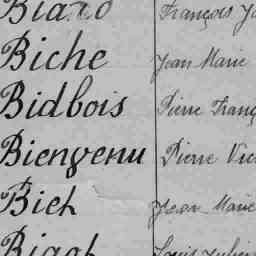 Biard François
Biche Jean Marie
Bidbois Pierre
Bienvenu Pierre
Biet Jean Marie
Bigot Louis Julien